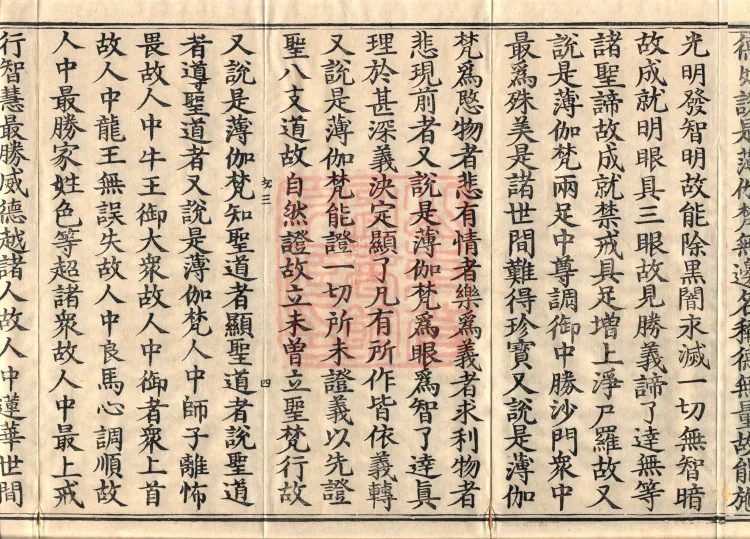 說是薄伽梵無邊名稱德無量故能施
光明發智明故能除黑闇永滅一切無智暗
故成就明眼具三眼故見勝義諦了達無等
諸聖諦故成就禁戒具足增上淨尸羅故又
說是薄伽梵兩足中尊調御中勝沙門衆中
最爲殊美是諸世間難得珍寶又說是薄伽
梵爲愍物者悲有情者樂爲義者求利物者
悲現前者又說是薄伽梵爲眼爲智了達眞
理於甚深義決定顯了凡有所作皆依義轉
又說是薄伽梵能證一切所未證義以先證
聖八支道故自然證故立未曾立聖梵行故
三 四
又說是薄伽梵知聖道者顯聖道者說聖道
者導聖道者又說是薄伽梵人中師子離怖
畏故人中牛王御大衆故人中御者衆上首
故人中龍王無誤失故人中良馬心調順故
人中最勝家姓色等超諸衆故人中最上戒
行智慧最勝威德越諸人故人中蓮華世間